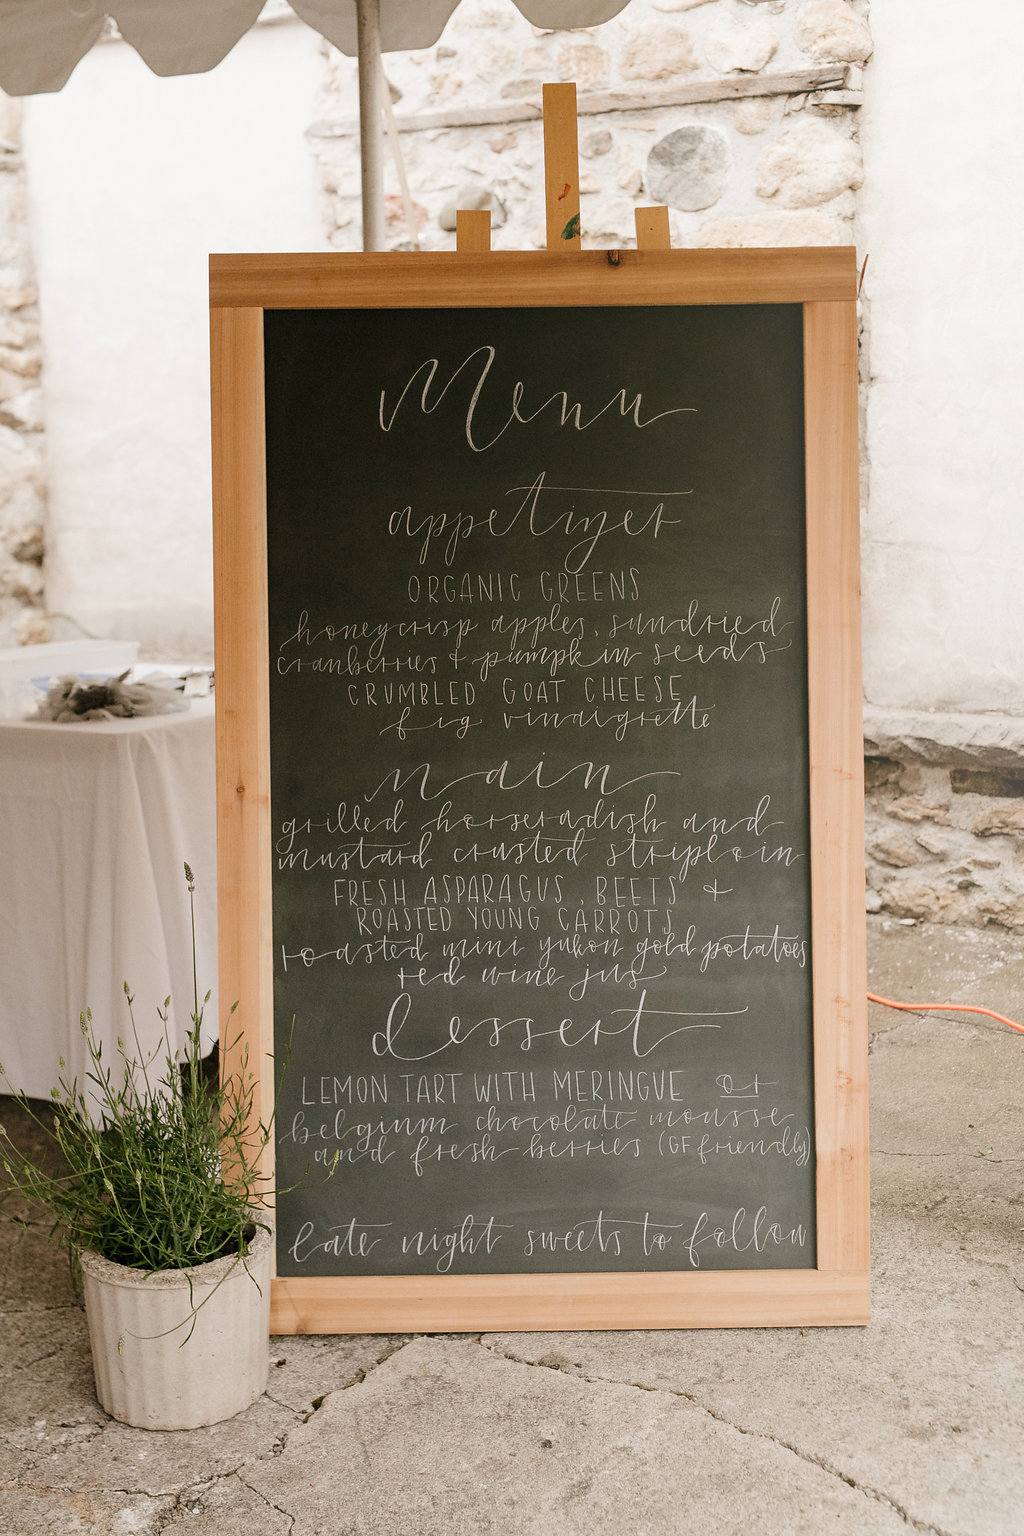 Menu
appetizer
ORGANIC GREENS
honeycrisp apples, sundried
cranberries + pumpkin seeds
CRUMBLED GOAT CHEESE
fig vinaigrette
main
grilled horseradish and
mustard crusted striploin
FRESH ASPARAGUS, BEETS +
ROASTED YOUNG CARROTS
roasted mini yukon gold potatoes
red wine jus
dessert
LEMON TART WITH MERINGUE or
belgium chocolate mousse
and fresh berries (GF friendly)
late night sweets to follow